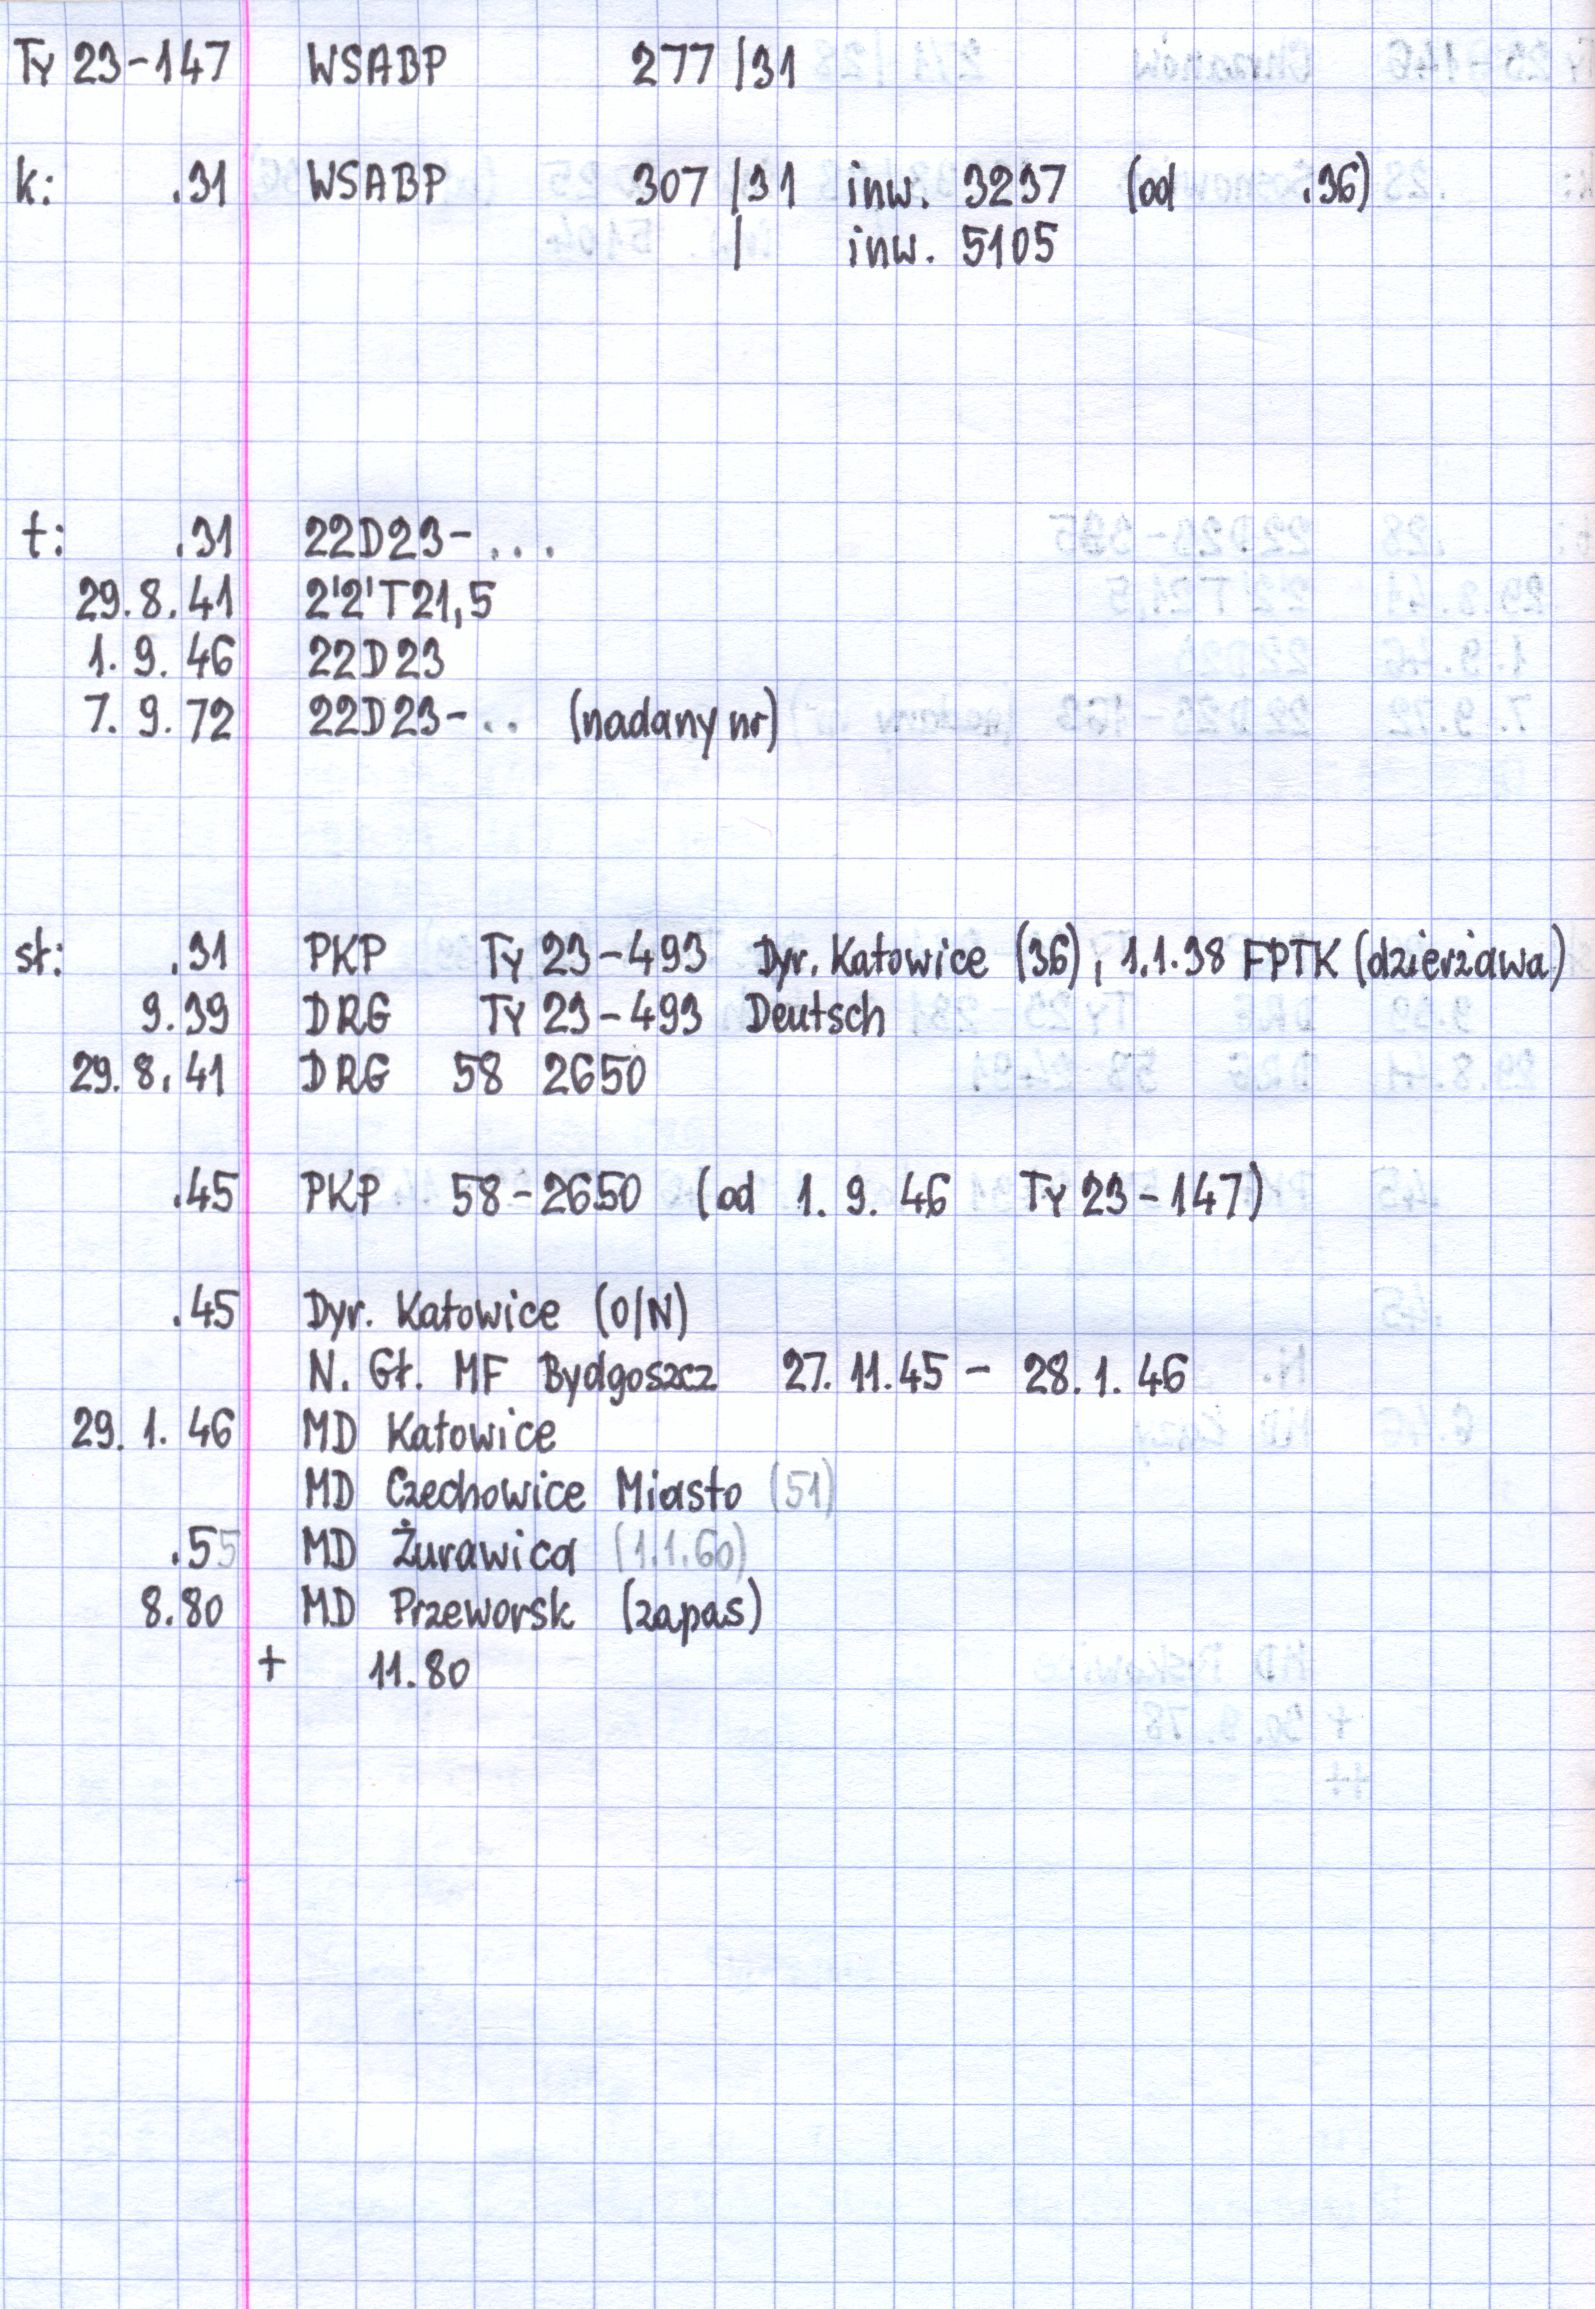 Ty 23-147 WSABP 277 /31
k: .31 WSABP 307 /31 inw. 3237 (od .36)
| inw. 5105
t: .31 22D23-...
29.8.41 2'2'T21,5
1.9.46 22D23
7.9.72 22D23-.. (nadany nr)
sł: .31 PKP Ty 23-493 Dyr. Katowice (36), 1.1.38 FPTK (dzierżawa)
9.39 DRG Ty 23-493 Deutsch
29.8.41 DRG 58 2650
.45 PKP 58-2650 (od 1.9.46 Ty 23-147)
.45 Dyr. Katowice (O/N)
N. Gł. MF Bydgoszcz 27.11.45 - 28.1.46
29.1.46 MD Katowice
MD Czechowice Miasto (51)
.55 MD Żurawica (1.1.60)
8.80 MD Przeworsk (zapas)
+ 11.80